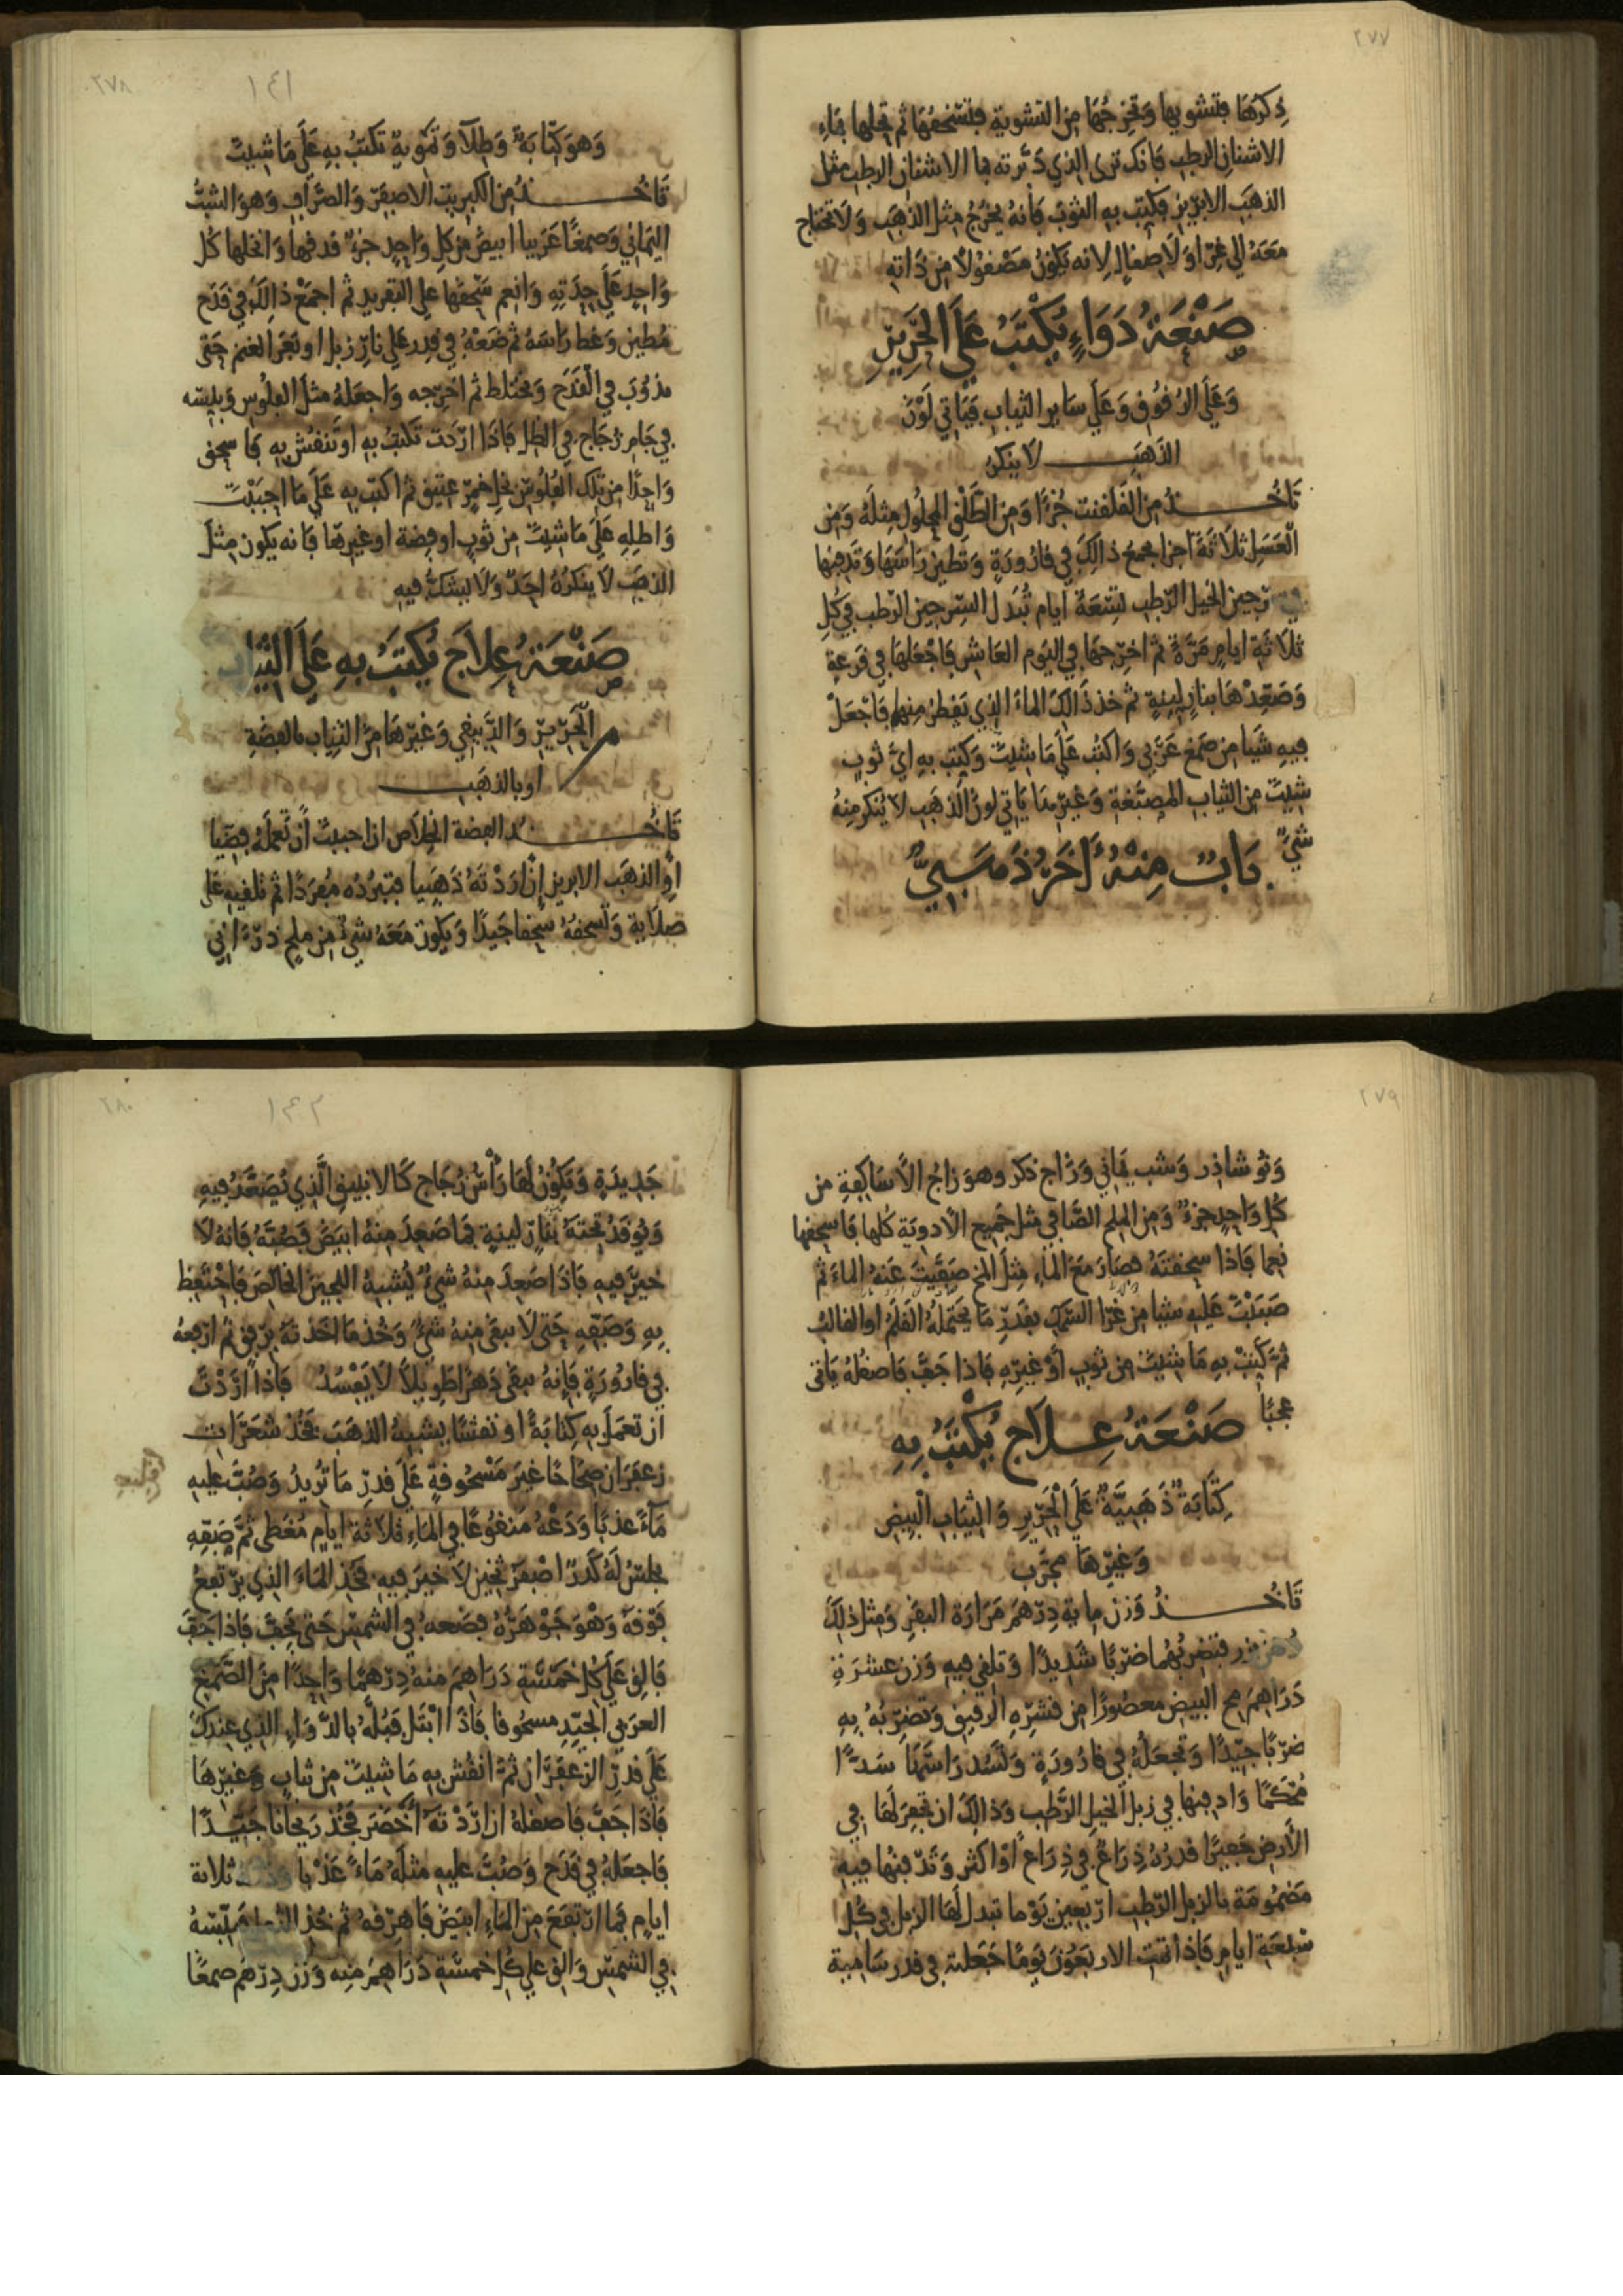 ٢٧٧
ذكرها فتشويها وتخرجها من التشوية فتسحقها ثم تحلها بماء
الاشنان الرطب فانك ترى الذي دبرته بما الاشنان الرطب مثل
الذهب الابريز فكتب به الثوب فانه يخرج مثل الذهب ولا تحتاج
معه الي غرا ولا صقال لانه يكون مصقولا من ذاته
صَنْعَةُ دَوَاءٍ يُكْتَبُ عَلَى الحَرِيرِ
وعلى الرقوق وعلى ساير الثياب فياتي لون
الذهب لا ينكر
تاخذ من القلقنت جزءًا ومن الطلق المحلول مثله ومن
العسل ثلاثة اجزا يجمع ذالك في قارورة وتطين راسها وتدفنها
في سرجين الخيل الرطب تسعة ايام تبدل السرجين الرطب في كل
ثلاثة ايام مرة ثم اخرجها في اليوم العاشر فاجعلها في قرعة
وصعدها بنار لينة ثم خذ ذالك الماء الذي يقطر منها فاجعل
فيه شيا من صمغ عربي واكتب على ما شيت وكتب به اي ثوب
شيت من الثياب المصبغة وغيرها ياتي لون الذهب لا ينكر منه
شيء
بَابٌ مِنْهُ اَخَرُ ذَهَبِيٌّ
٢٧٨
١٤١
وهو كتابة وطلا وتموية تكتب به على ما شيت
تاخذ من الكبريت الاصفر والصراف وهو الشب
اليماني وصمغا عربيا ابيض من كل واحد جزء فدقها وانخلها كل
واحد على حدته وانعم سحقها على التفريد ثم اجمع ذالك في قدح
مطين وغط راسه ثم ضعه في قدر على نار زبل او بعر الغنم حتى
يذوب في القدح ويختلط ثم اخرجه واجعله مثل الفلوس ويبسه
في جام زجاج في الظل فاذا اردت تكتب به او تنقش به فاسحق
واحدا من تلك الفلوس بخل خمر عتيق ثم اكتب به على ما احببت
واطله على ما شيت من ثوب او فضة او غيرها فانه يكون مثل
الذهب لا ينكره احد ولا يشك فيه
صَنْعَةُ عِلاج يُكتَبُ بِهِ عَلَى الثِّيَاب
الحرير والدبيقي وغيرها من الثياب بالفضة
او بالذهب
تاخذ الفضة الخلاص ان احببت ان تعمله فضيا
او الذهب الابريز ان اردته ذهبيا فتبرده مبردا ثم تلقيه على
صلاية وتسحقه سحقا جيدا ويكون معه شيء من ملح درءاني
٢٧٩
ونوشاذر وشب يماني وزاج ذكر وهو زاج الاساكفة من
كل واحد جزء ومن الملح الصافي مثل جميع الادوية كلها فاسحقها
نعما فاذا سحقته فصار مع الماء مثل المخ صفيت عنه الماء ثم
صببت عليه شيا من غرا السمك بقدر ما يحتمله القلم او القالب
ثم كتبت به ما شيت من ثوب او غيره فاذا جف فاصقله ياتى
عجبا
صَنْعَةُ عِلاَج يُكْتَبُ بِهِ
كتابة ذهبية على الحرير والثياب البيض
وغيرها مجرب
تاخذ وزن ماية درهم مرارة البقر ومثل ذلك
فتضربهما ضربا شديدا وتلقي فيه وزن عشرة
دراهم مح البيض معصورا من قشره الرقيق وتضربه به
ضربا جيدا وتجعله في قارورة وتسد راسها سدا
محكما وادفنها في زبل الخيل الرطب وذالك ان تحفر لها في
الارض حفيرا قدره ذراع في ذراع او اكثر وتدفنها فيه
مضمومة بالزبل الرطب اربعين يوما تبدل لها الزبل في كل
سبعة ايام فاذا تمت الاربعون يوما جعلته في قدر شامية
٢٨٠
١٤٢
جديدة وتكون لها راس زجاج كالانبيق الذي يصعد فيه
وتوقد تحته بنار لينة فما صعد منه ابيض فصبه فانه لا
خير فيه فاذا صعد منه شيء يشبه اللجين الخالص فاحتفظ
به وصفه حتى لا يبقى منه شيء وخذ ما اخذته برفق ثم ارفعه
في قارورة فانه يبقى دهرا طويلا لا يفسد فاذا اردت
ان تعمل به كتابة او نقشا يشبه الذهب فخذ شعرات
زعفران صحاحا غير مسحوقة على قدر ما تريد وصب عليه
ماء عذبا ودعه منقوعا في الماء ثلاثة ايام مغطى ثم صفه
بجلس له كدر اصفر ثخين لا خير فيه فخذ الماء الذي يرتفع
فوقه وهو جوهره فضعه في الشمس حتى يجف فاذا جف
فالق على كل خمسة دراهم منه درهما واحدا من الصمغ
العربي الجيد مسحوقا فاذا ابتل فبله بالدواء الذي عندك
على قدر الزعفران ثم انقش به ما شيت من ثياب وغيرها
فاذا جف فاصقله ان اردته اخضر فخذ ريحانا جيدا
فاجعله في قدح وصب عليه مثله ماء عذبا ثلاثة
ايام فما ارتفع من الماء ابيض فاهرقه ثم خذ فيبسه
في الشمس والق على كل خمسة دراهم منه وزن درهم صمغا